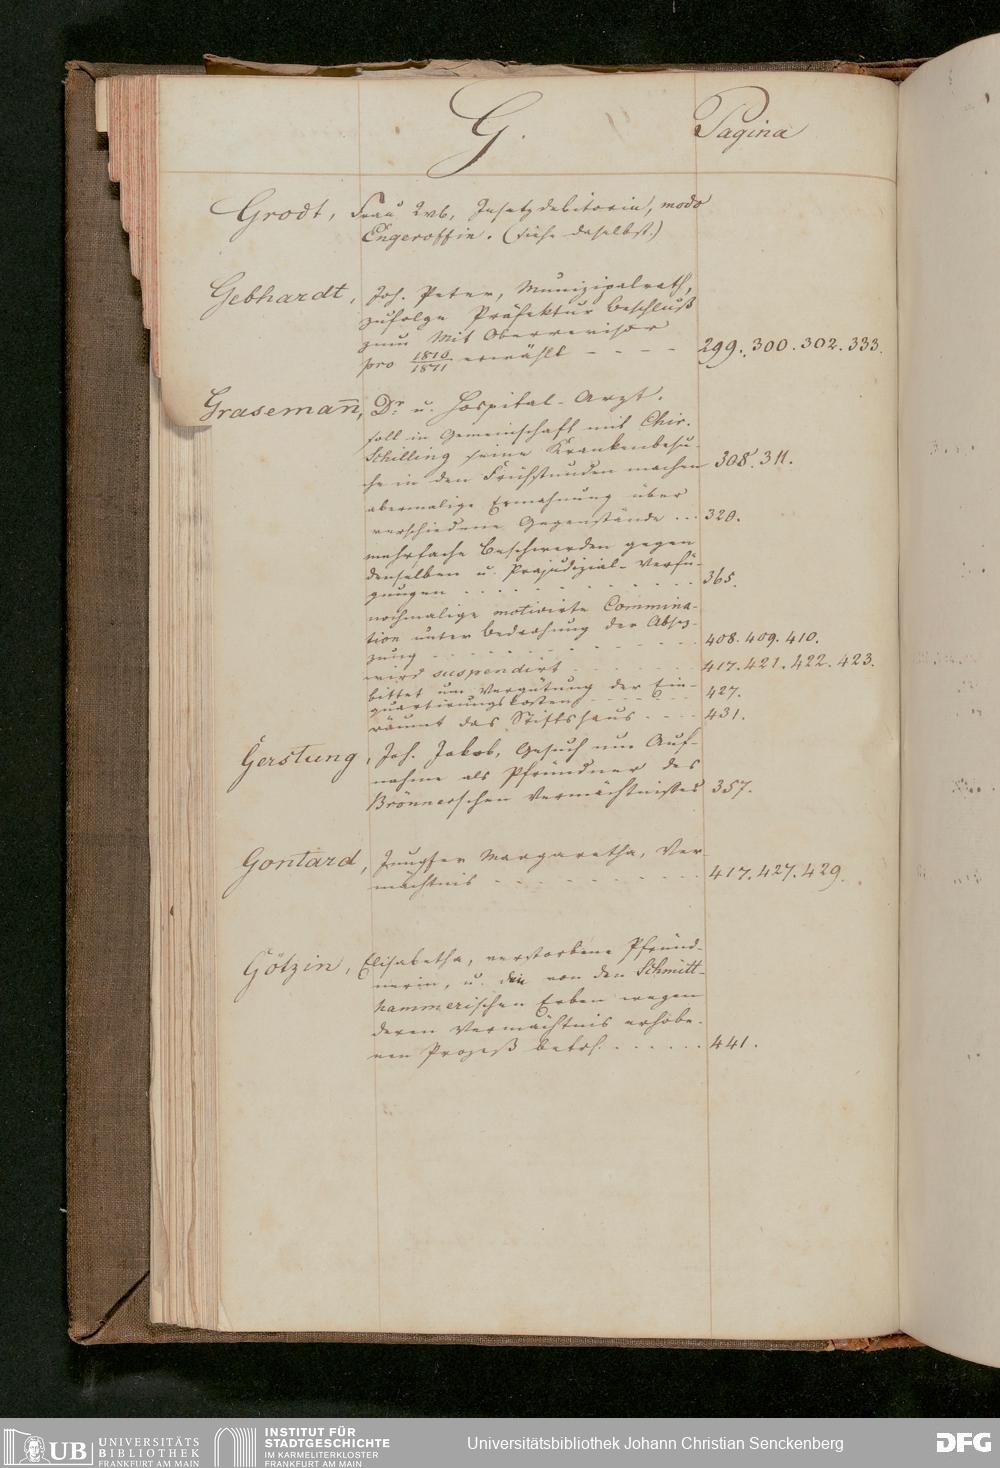 G.
Pagina
Grodt, Frau 2vb, Insatzdebitorin, modo
Engeroffin. (siehe daselbst.)
Gebhardt, Joh. Peter, Munizipalrath,
zufolge Präfektur Beschluß
zum Mit Oberrevisor
pro erwählt - - - - 299. 300. 302. 333.
Grasemañ, Dr. u. Hospital-Arzt.
soll in Gemeinschaft mit Chir.
Schilling seine Krankenbesu-
che in den Frühstunden machen 308. 311.
abermalige Ermahnung über
verschiedene Gegenstände ... 320.
mehrfache Beschwerden gegen
denselben u. Präjudizial-Verfü-
gungen . . . . . . . . 365.
nochmalige motivirte Commina-
tion unter Bedrohung der Absez-
zung . . . . . . . . 408. 409. 410.
wird suspendirt - - - - - 417. 421. 422. 423.
bittet um Vergütung der Ein-
quartirungskosten - - - - 427.
räumt das Stiftshaus - - - - 431.
Gerstung, Joh. Jakob, Gesuch um Auf-
nahme als Pfründner des
Brönnerschen Vermächtnißes 357.
Gontard, Jungfer Margaretha, Ver-
mächtnis - - - - - - - - 417. 427. 429.
Götzin, Elisabetha, verstorbene Pfründ-
nerin, u. den von den Schmitt-
hammerischen Erben wegen
deren Vermächtnis erhobe-
nen Prozeß betr. . . . . . . 441.
UB UNIVERSITÄTS
BIBLIOTHEK
FRANKFURT AM MAIN
INSTITUT FÜR
STADTGESCHICHTE
IM KARMELITERKLOSTER
FRANKFURT AM MAIN
Universitätsbibliothek Johann Christian Senckenberg
DFG